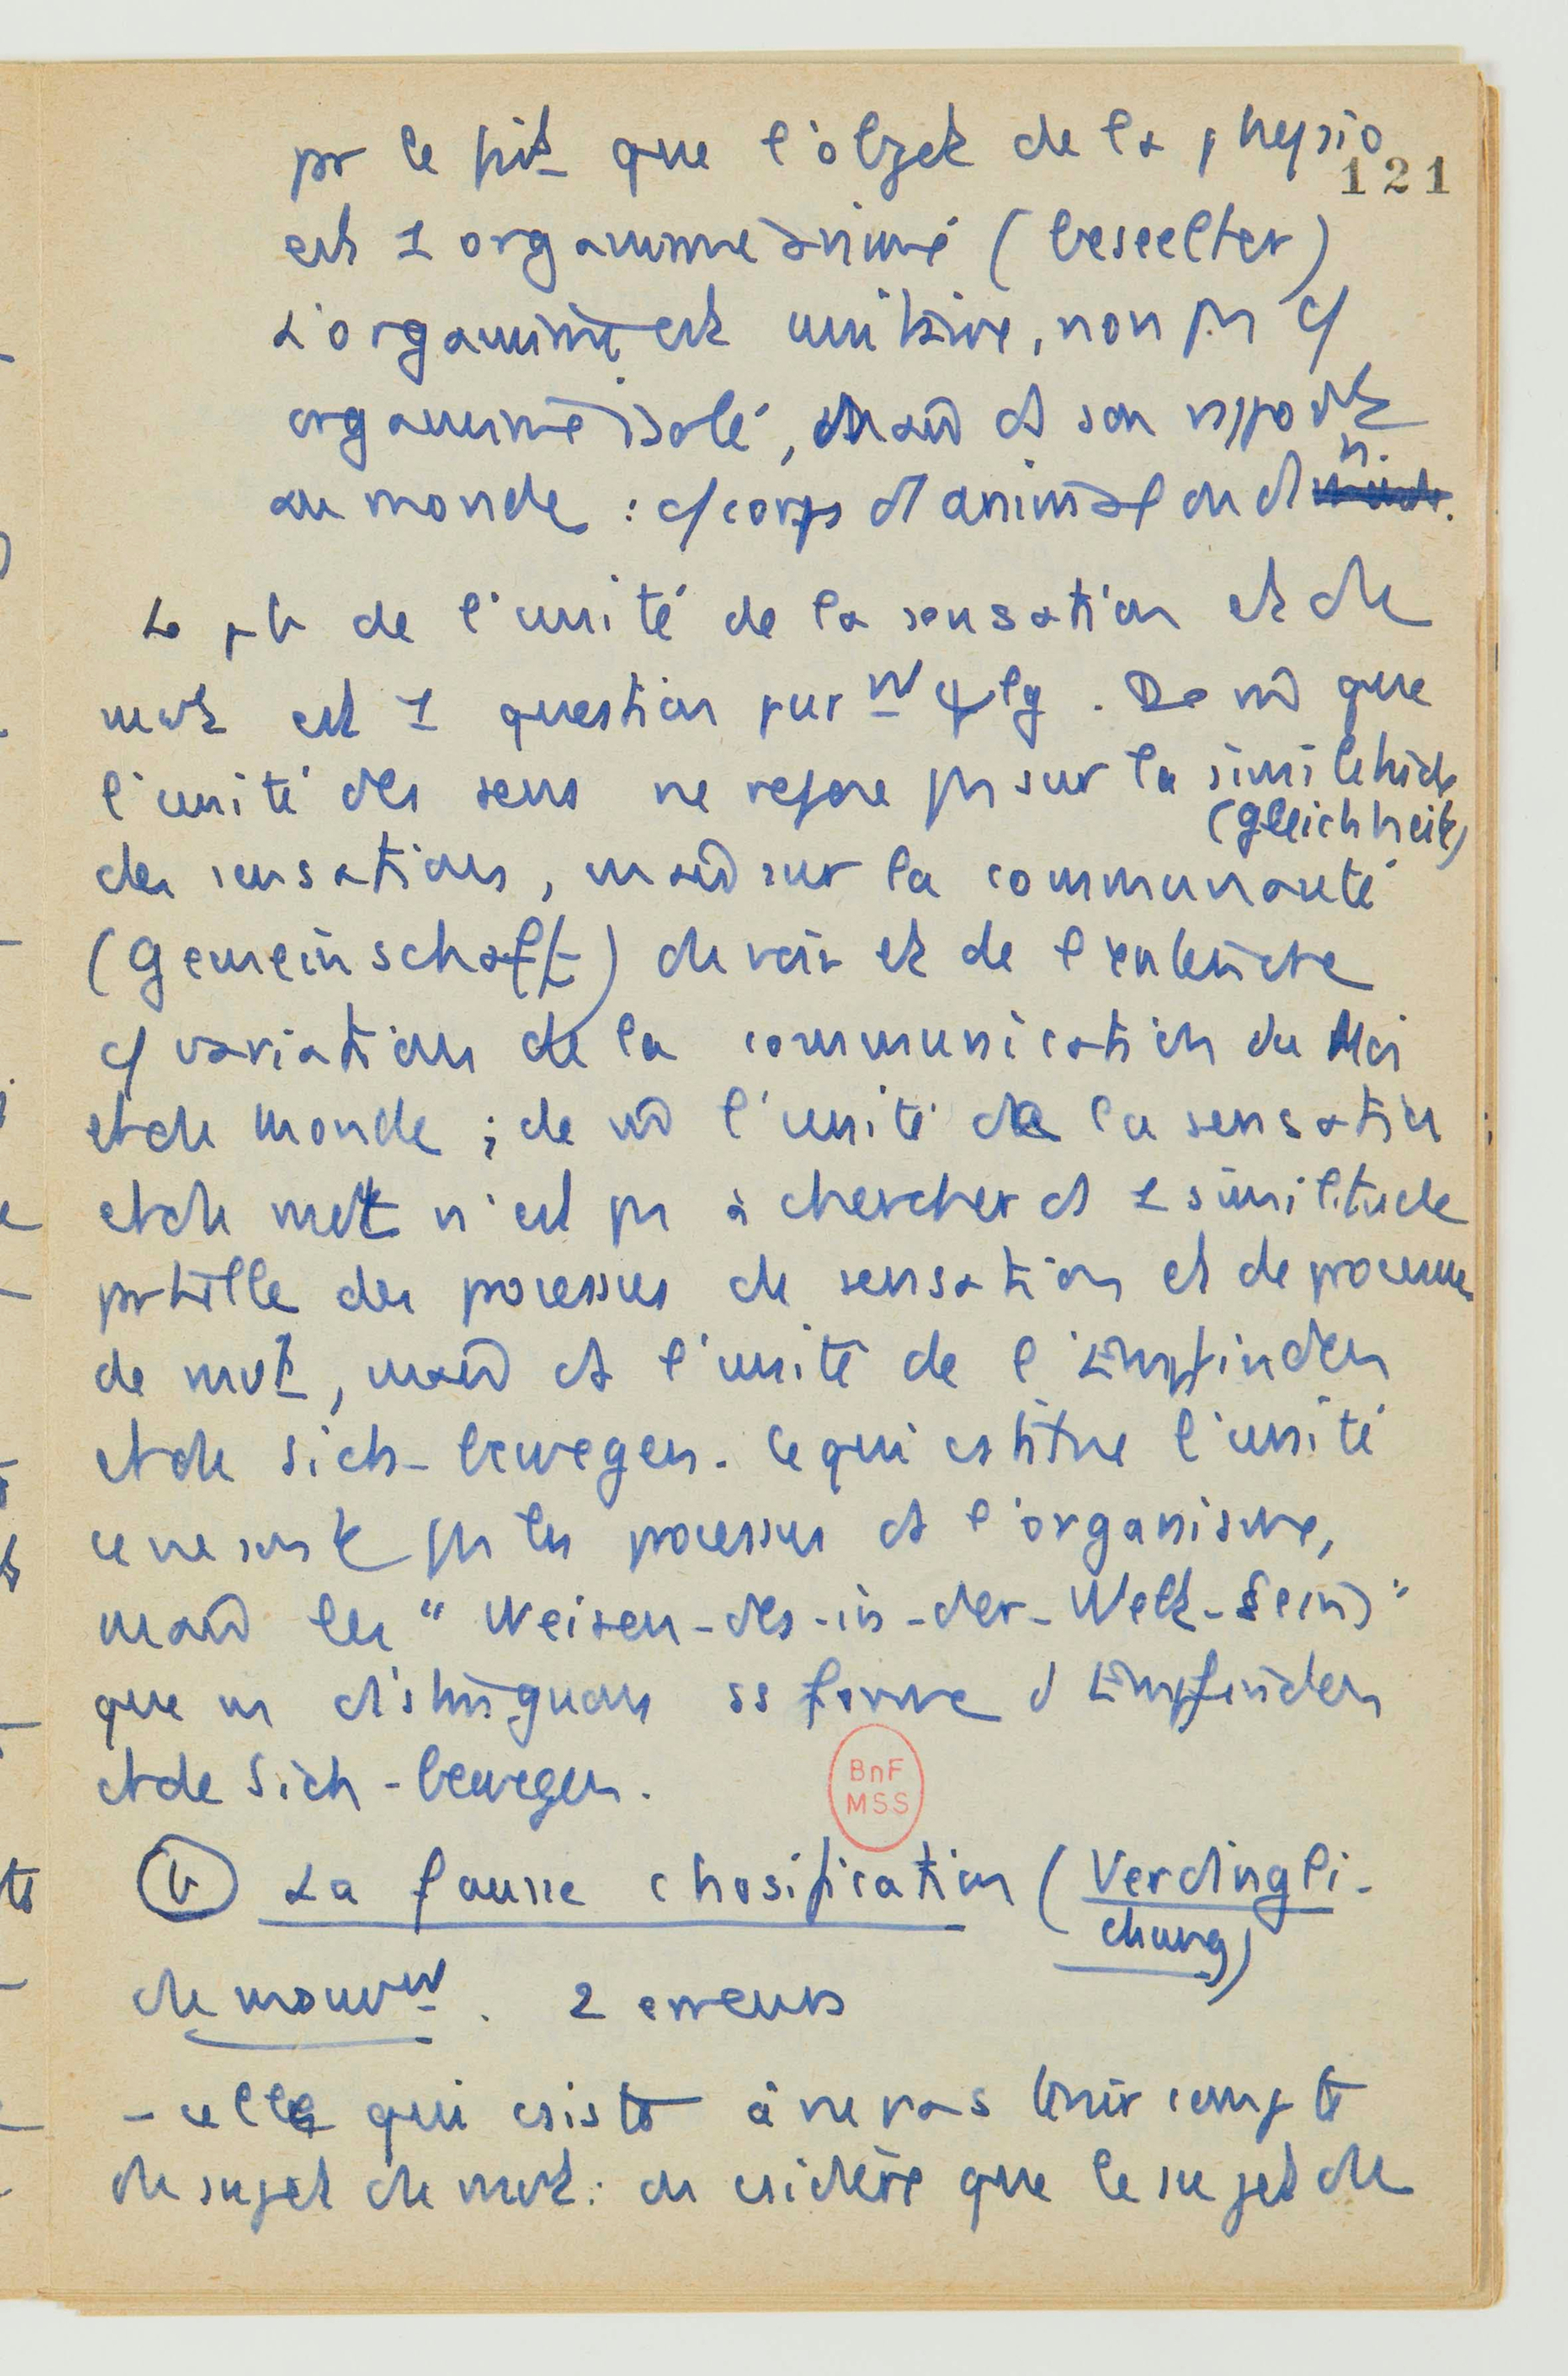 pr le fait que l'objet de la physio
121
est 1 organisme animé (beseelter)
L'organisme est unitaire, non pas c/
organisme isolé, mais ds son rapport
au monde : c/ corps d'animal ou d'h.
Le pb de l'unité de la sensation et du
mvt est 1 question purmt ψlg. De m̂ que
l'unité des sens ne repose pas sur la similitude
(Gleichheit)
des sensations, mais sur la communauté
(Gemeinschaft) du voir et de l'entendre
c/ variations de la communication du Moi
et du monde ; de m̂ l'unité de la sensation
et du mvt n'est pas à chercher ds 1 similitude
des processus de sensation et de processus
de mvt, mais ds l'unité de l'Empfinden
et du Sich-bewegen. Ce qui cstitue l'unité
ce ne sont pas les processus ds l'organisme,
mais les "Weisen-des-in-der-Welt-Seins"
que ns distinguons ss forme d'Empfinden
et de Sich-bewegen.
BnF
MSS
(b) La fausse chosification (Verdingli-
chung)
du mouvmt. 2 erreurs
- celle qui csiste à ne pas tenir compte
du sujet du mvt : on csidère que le sujet du